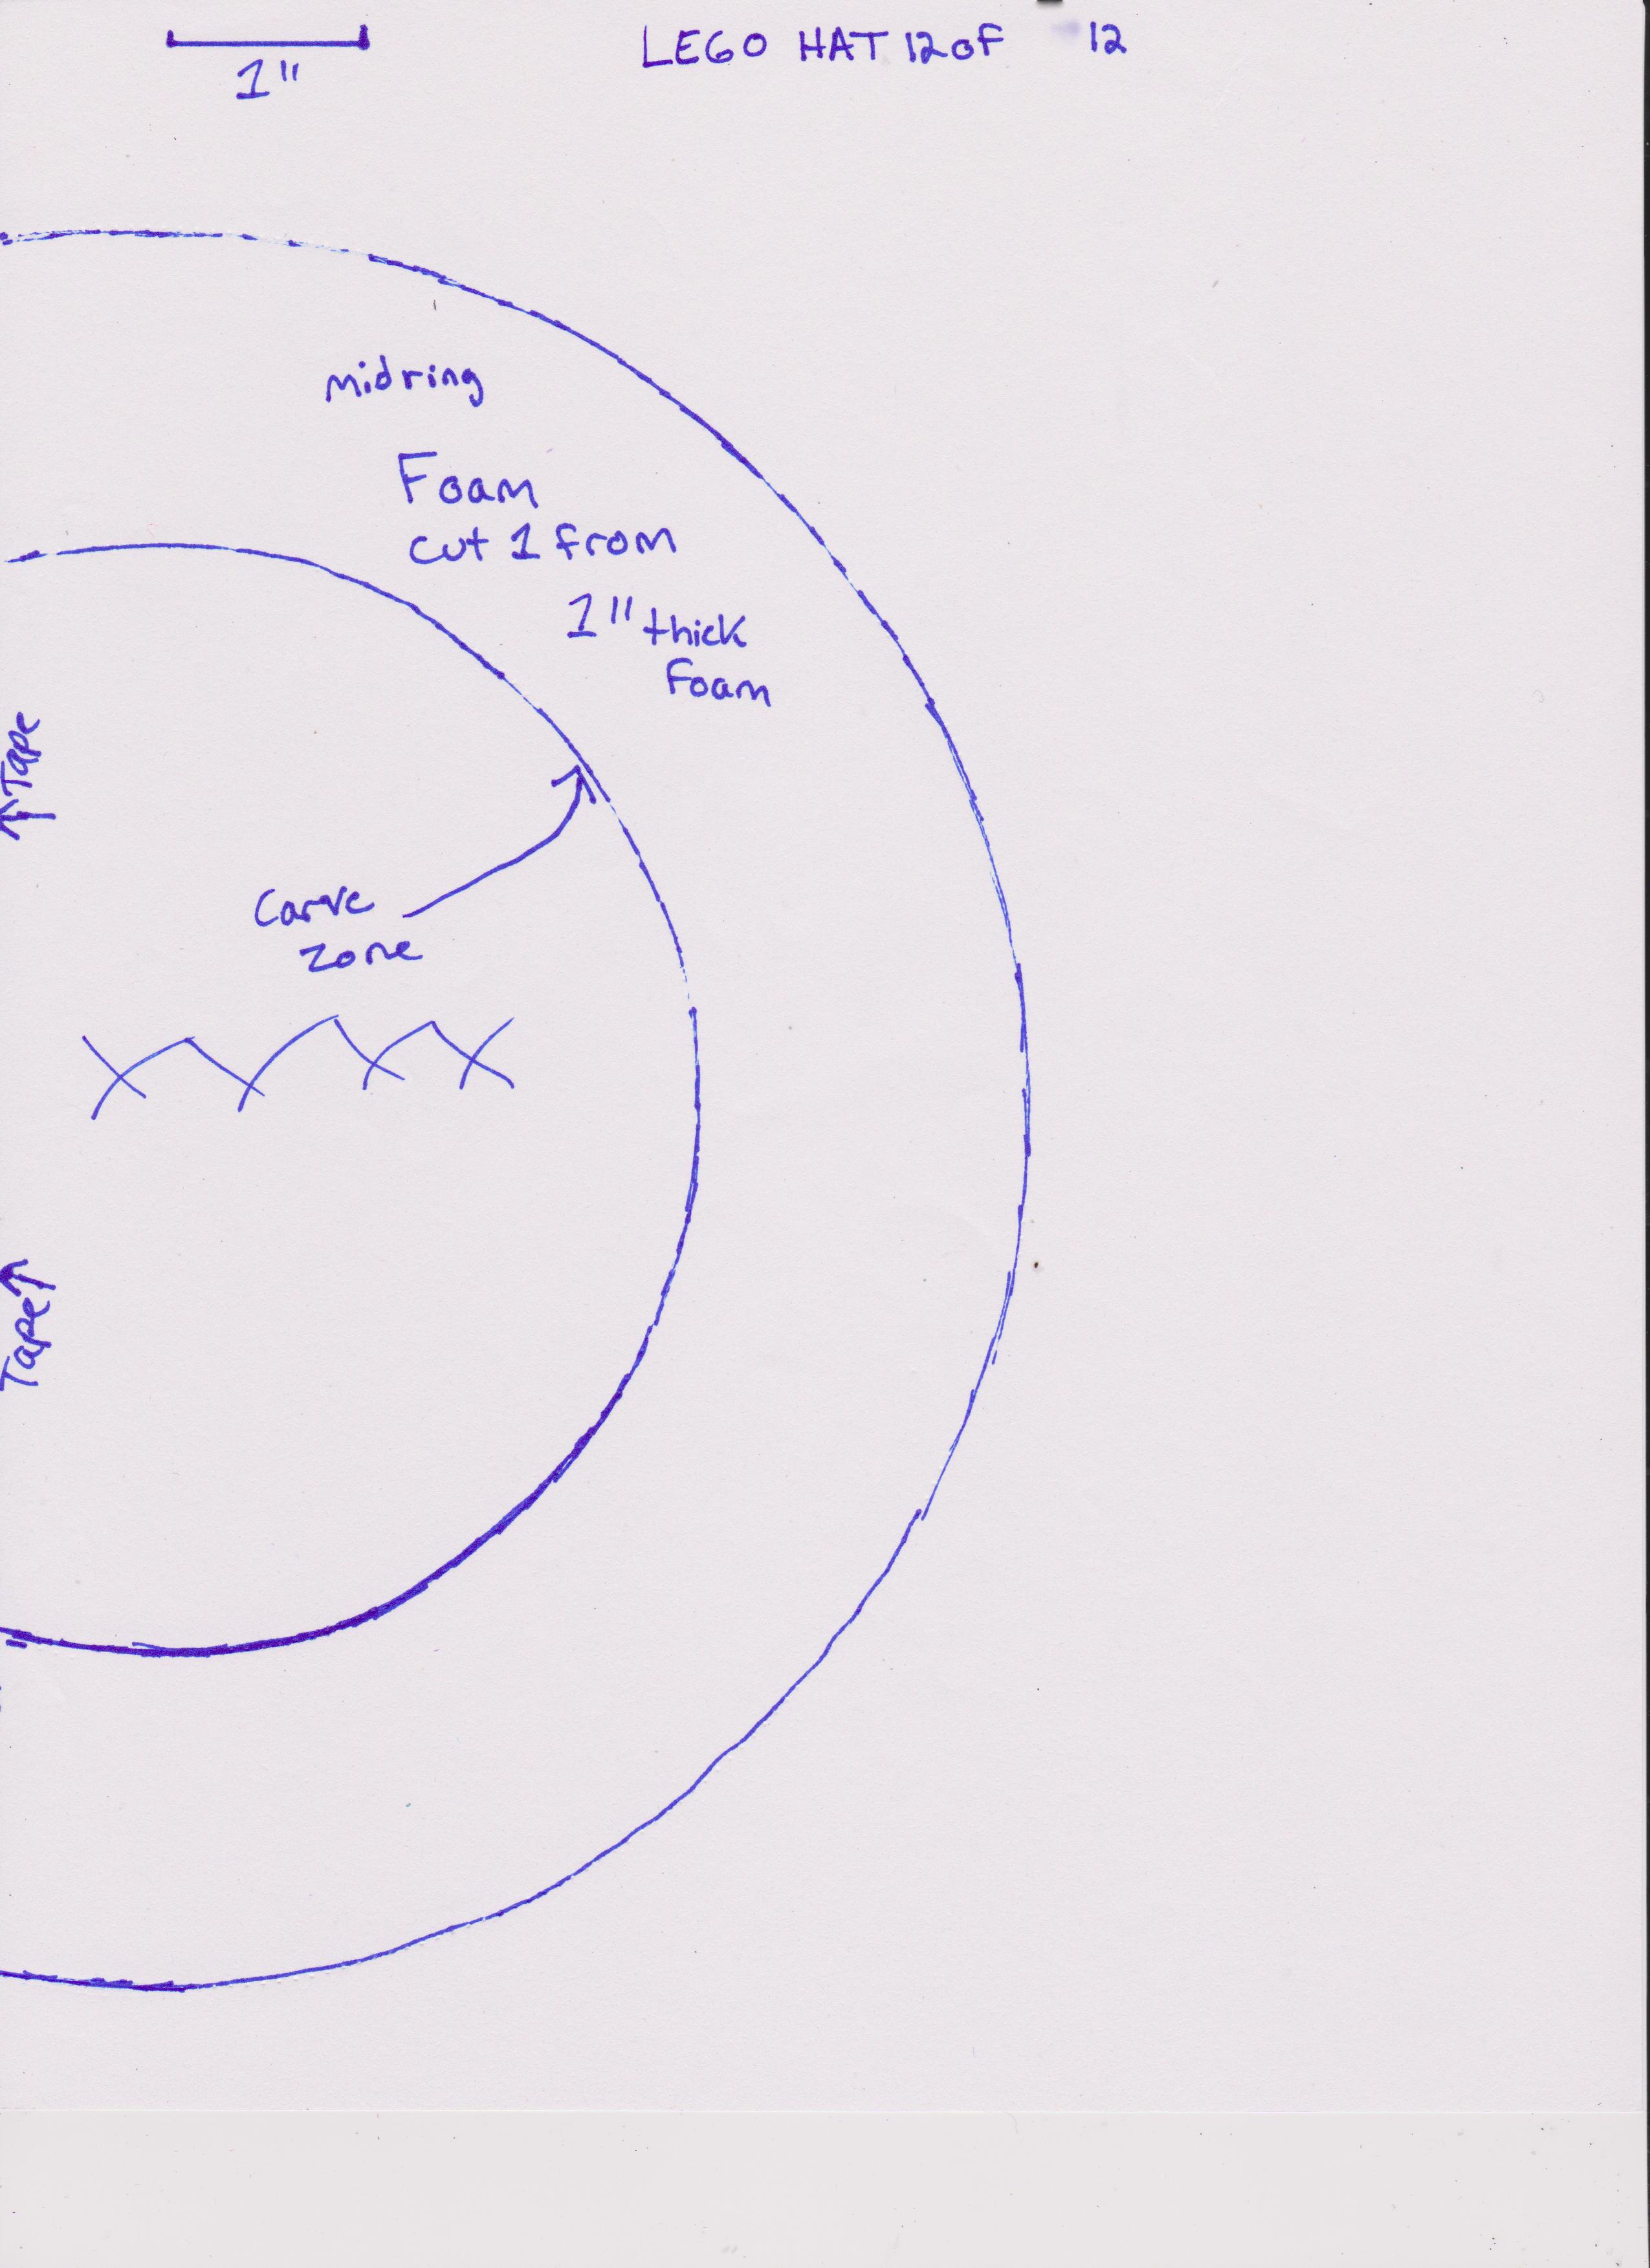 1"
LEGO HAT 12 OF 12
midring
Foam
cut 1 from
1" thick
Foam
Tape
Carve
zone
Tape